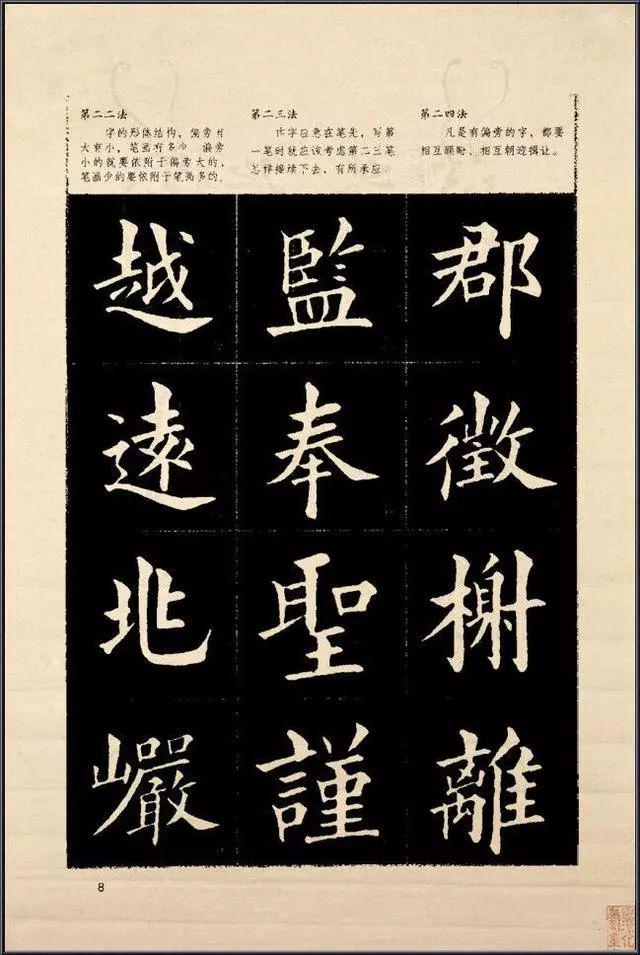 第二二法
字的形体结构，偏旁有
大有小，笔画有多少 偏旁
小的就要依附于偏旁大的，
笔画少的要依附于笔画多的.
第二三法
字 意在笔先，写第
一笔时就应该考虑第二三笔
怎样继续下去，有所承应
第二四法
凡是有偏旁的字，都要
相互顾盼、相互朝迎揖让。
越
遠
兆
巗
監
奉
聖
謹
郡
徵
榭
離
8